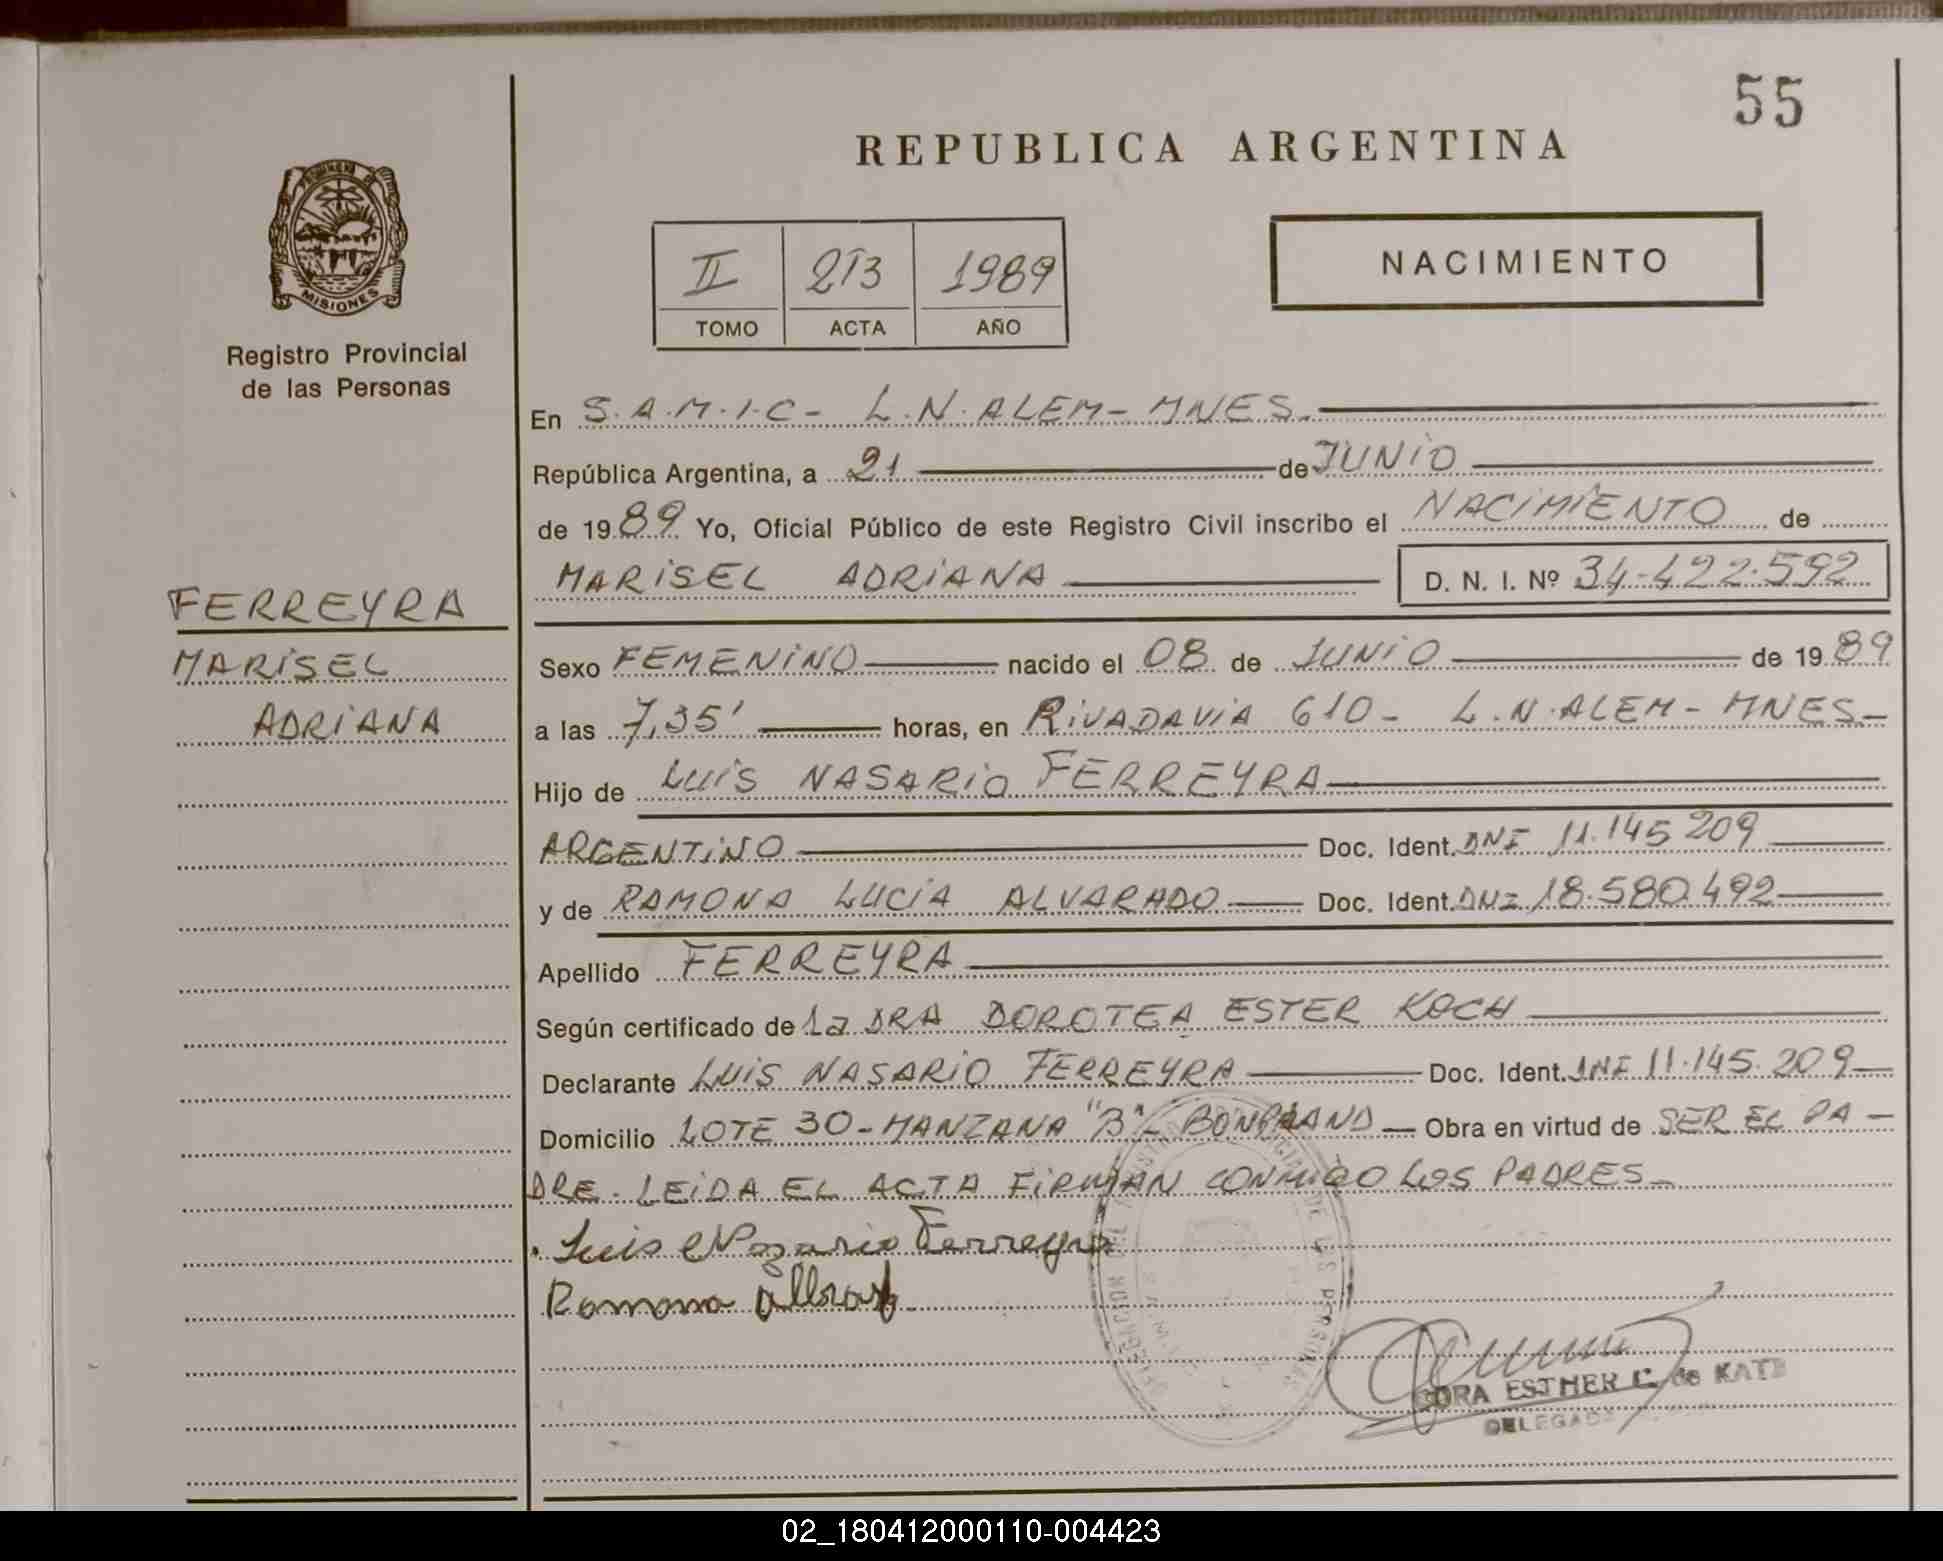 55
REPUBLICA ARGENTINA
PROVINCIA DE
MISIONES
Registro Provincial
de las Personas
II 213 1989
TOMO ACTA AÑO
NACIMIENTO
En S.A.M.I.C- L.N.ALEM-MNES.
República Argentina, a 21 de JUNIO
de 1989 Yo, Oficial Público de este Registro Civil inscribo el NACIMIENTO de
MARISEL ADRIANA D. N. I. Nº 34-422.592
FERREYRA
MARISEL
ADRIANA
Sexo FEMENINO nacido el 08 de JUNIO de 1989
a las 7,35' horas, en RIVADAVIA 610- L.N.ALEM-MNES-
Hijo de LUIS NASARIO FERREYRA
ARGENTINO Doc. Ident. DNI 11.145 209
y de RAMONA LUCIA ALVARADO Doc. Ident. DNI 18.580.492
Apellido FERREYRA
Según certificado de la DRA DOROTEA ESTER KOCH
Declarante LUIS NASARIO FERREYRA Doc. Ident. DNI 11.145.209
Domicilio LOTE 30-MANZANA "B" BONPLAND Obra en virtud de SER EL PA-
DRE. LEIDA EL ACTA FIRMAN CONMIGO LOS PADRES-
Luis Nazario Ferreyra
Ramona
DE LAS PERSONAS
ESTHER C. de KATZ
DELEGADA
02_180412000110-004423